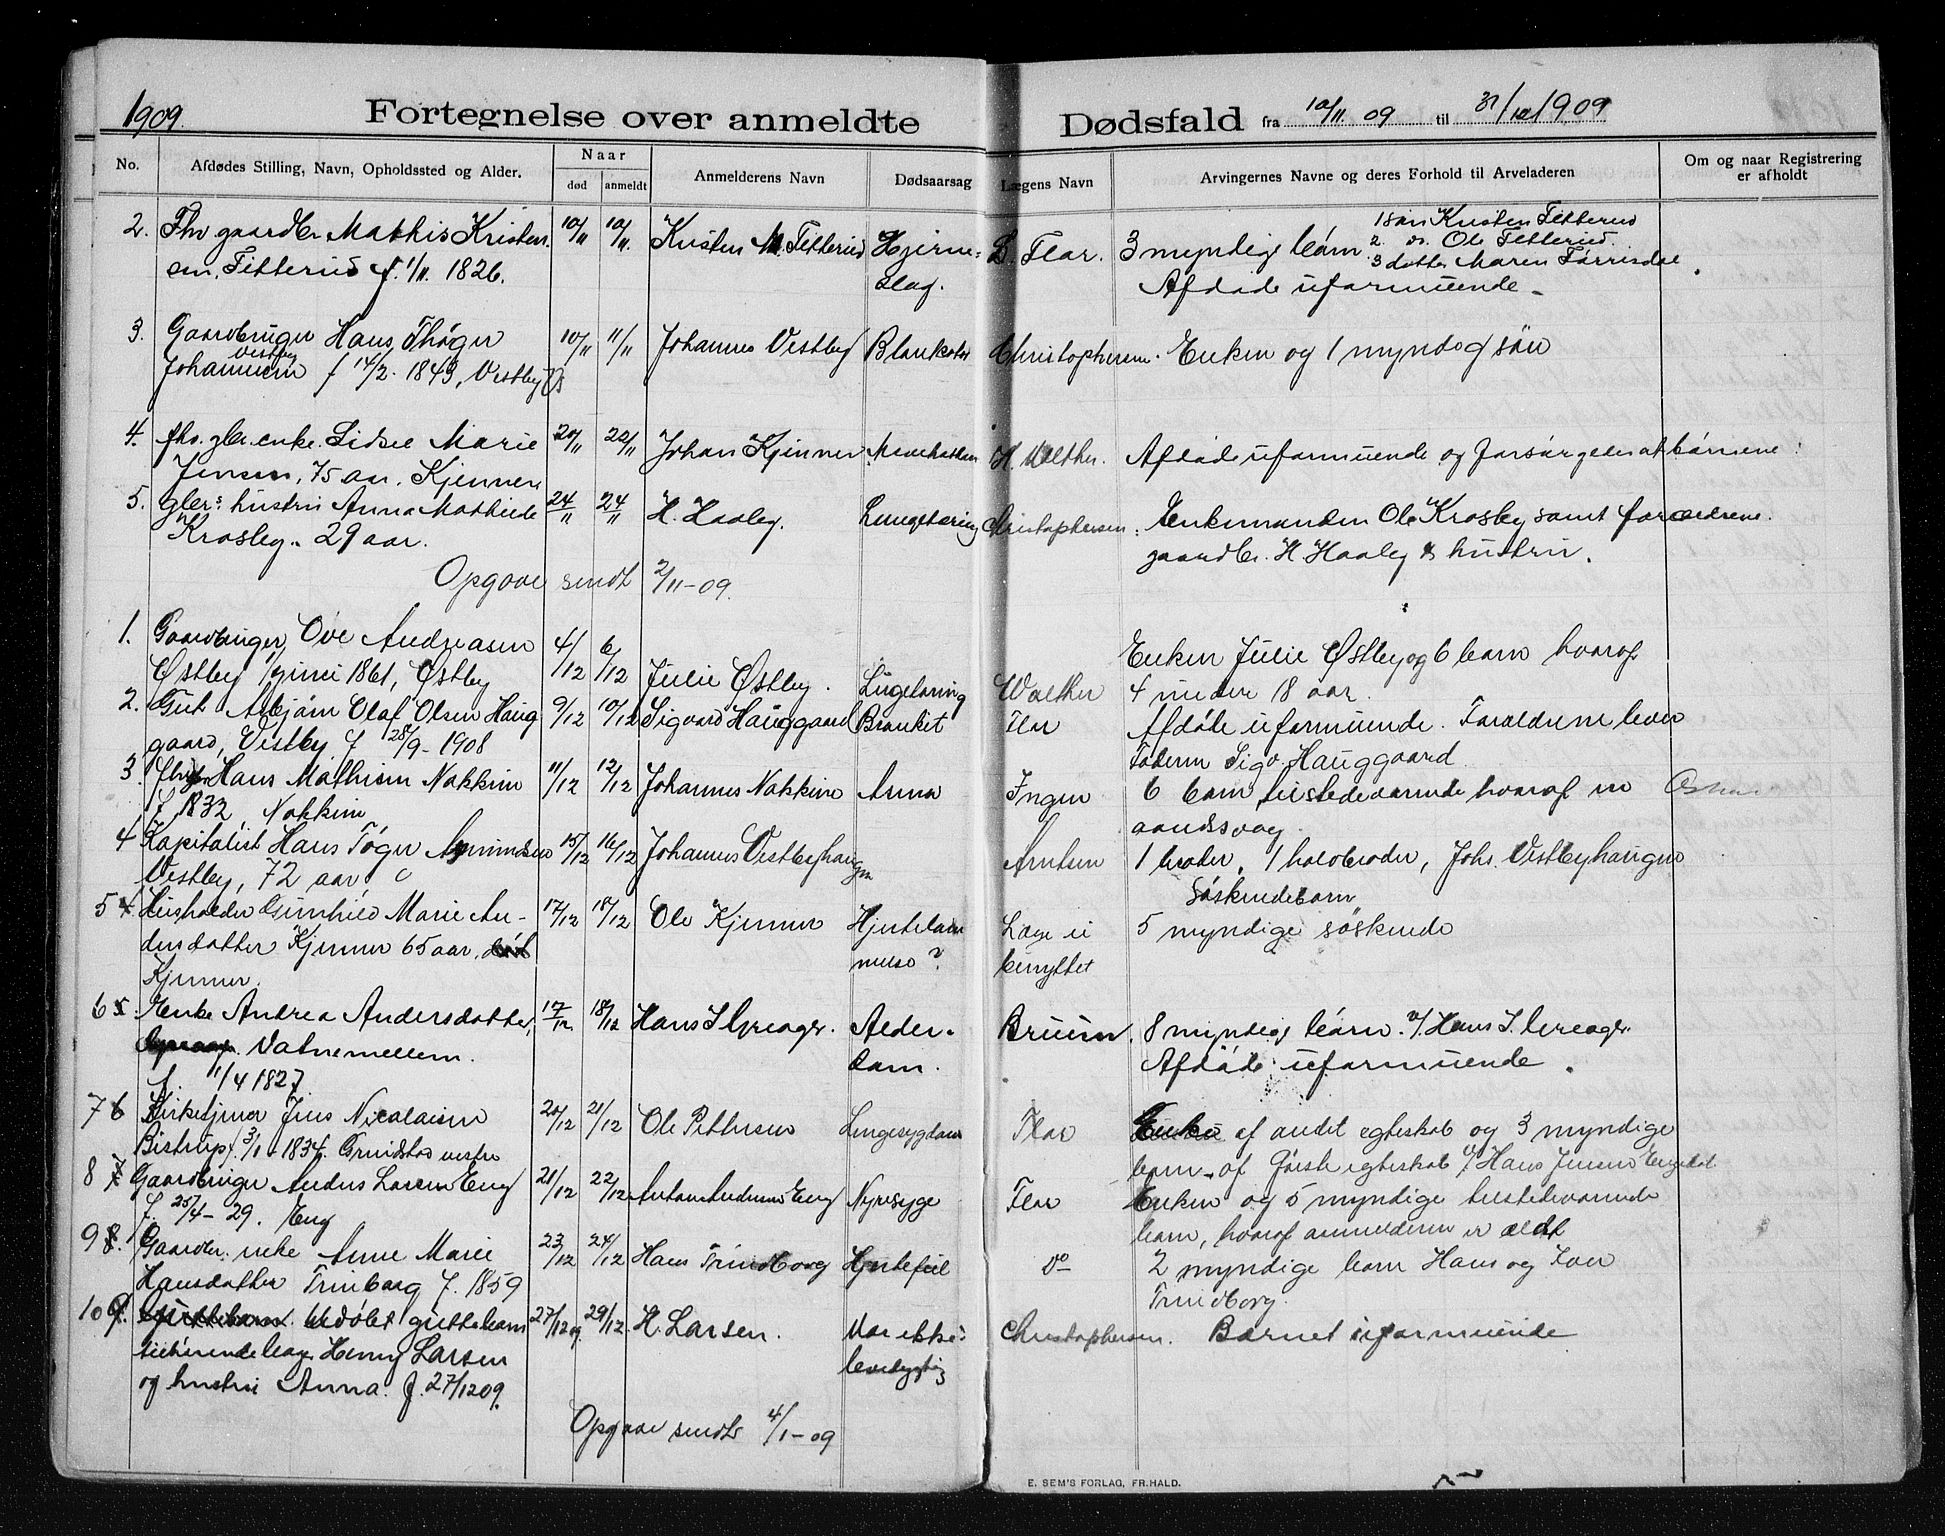 1909. Fortegnelse over anmeldte Dødsfald fra 10/11 09 til 31/12 1909
No. Afdødes Stilling, Navn, Opholdssted og Alder. Naar død anmeldt Anmelderens Navn Dødsaarsag Lægens Navn Arvingernes Navne og deres Forhold til Arveladeren Om og naar Registrering er afholdt
2. Fhv gaardbr Mathis Kristen- 10/11 10/11 Kristen M. Fitterud Hjerne- Flor. 3 myndige børn 1 søn Kristen Fitterud
2. do. Ole Fitterud.
3 datter Maren
sen Fitterud f. 1/11. 1826. slag. Afdøde uformuende.
3. Gaardbruger Hans Thøger 10/11 11/11 Johannes Vestby Christophersen. Enken og 1 myndig søn
Vestby
Johannesen f 14/2. 1843, Vestby
4. fhv. gbr. enke. Lidsee Marie 20/11 22/11 Johan Kjenner H. Walther. Afdøde uformuende og forsørgedes af børnene
Jensen, 75 aar. Kjenner
5. gbrs hustru Anna Mathilde 24/11 24/11 H. Haaby. Lungetæring Christophersen. Enkemanden Ole Krosby samt forældrene.
Krosby. 29 aar. gaardbr. H. Haaby & hustru.
Opgave sendt 2/11-09.
1. Gaardbruger Ove Andreasen 4/12 6/12 Enken Julie Østby og 6 barn hvoraf
Østby 1 juni 1861, Østby Julie Østby. Lugetæring Walther 4 under 18 aar.
2. Gut Asbjørn Olaf Olsen Haug 9/12 10/12 Sigvard Hauggaard Bronket Flor Afdøde uformuende. Forældrene lever
gaard, Vestby f 28/9-1908 Faderen Sigv. Hauggaard
3. Hans Mathisen Nokkim 11/12 12/12 Johannes Nakkim Asma Ingen 6 barn tilstedeværende hvoraf en
f 1832, Nakkim aandssvag.
4 Kapitalist Hans Tøger Amundsen 15/12 16/12 Johannes Vestbyhaugen Arntsen 1 broder, 1 halvbroder, Johs. Vestbyhaugen
Vestby, 72 aar Søskendebarn
5 4 Husholder Gunhild Marie An- 17/12 18/12 Ole Kjenner Læge ei 5 myndige søskende
dersdatter Kjenner 65 aar, benyttet
Kjenner.
6 5. Enke Andrea Andersdatter, 17/12 18/12 Hans I Opeager. Alder- Bruun. 8 myndige børn. v/ Hans I. Opeager.
Vatnemellem. dom. Afdøde uformuende.
f. 11/4 1827
7 6 Kirketjener Jens Nicolaisen 20/12 21/12 Ole Pettersen Lungesygdom Flor Enke af andet egteskab og 3 myndige
Bistrup f. 3/1-1834. Grindstad vestre barn af første egteskab v/ Hans Jensen
8 7 Gaardbruger Anders Larsen Eng 21/12 22/12 Anton Andersen Eng Nyresyge Flor Enken og 5 myndige tilstedeværende
f. 25/4-29. Eng barn, hvoraf anmelderen er ældst
9 8. Gaardbr. enke Anne Marie 23/12 24/12 Hans Trindborg Hjertefeil do 2 myndige barn Hans og Iver
Hansdatter Trinborg f. 1859 Trindborg.
10 9. Udøbt guttebarn 27/12 09 29/12. H. Larsen. Var ikke Christophersen. Barnet uformuende
tilhørende bag. Henry Larsen levedygtig
og hustru Anna. f. 27/12 09.
Opgave sendt 4/1-09
E. SEM'S FORLAG, FR.HALD.